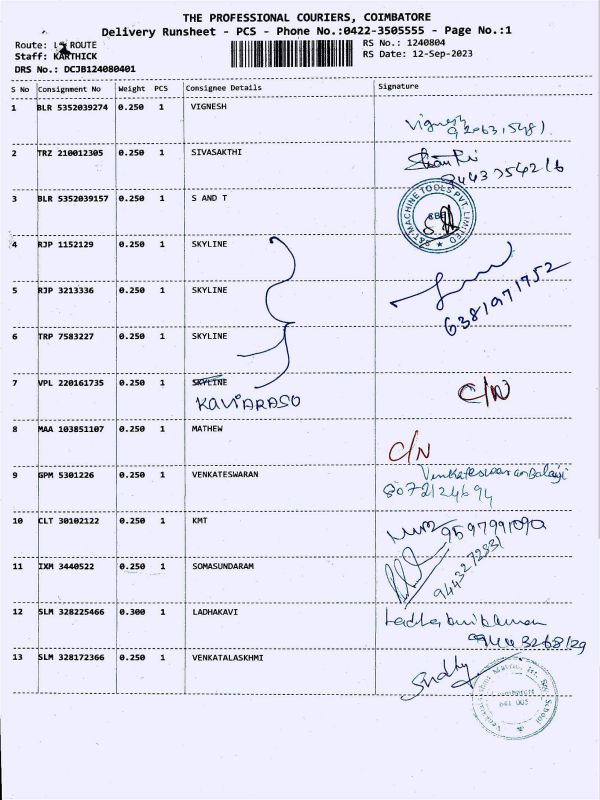 THE PROFESSIONAL COURIERS, COIMBATORE
Delivery Runsheet - PCS - Phone No.:0422-3505555 - Page No.:1
Route: ROUTE
Staff: KARTHICK
DRS No.: DCJB124080401
RS No.: 1240804
RS Date: 12-Sep-2023
S No Consignment No Weight PCS Consignee Details Signature
1 BLR 5352039274 0.250 1 VIGNESH
Vignesh
2 TRZ 210012305 0.250 1 SIVASAKTHI
3 BLR 5352039157 0.250 1 S AND T
S&T MACHINE TOOLS PVT. LIMITED
CBE
4 RJP 1152129 0.250 1 SKYLINE
5 RJP 3213336 0.250 1 SKYLINE
6381971752
6 TRP 7583227 0.250 1 SKYLINE
7 VPL 220161735 0.250 1 SKYLINE
KAVIARASO
C/N
8 MAA 103851107 0.250 1 MATHEW
C/N
9 GPM 5301226 0.250 1 VENKATESWARAN
Venkateswaran Balaji
8072124694
10 CLT 30102122 0.250 1 KMT
11 IXM 3440522 0.250 1 SOMASUNDARAM
9443272331
12 SLM 328225466 0.300 1 LADHAKAVI
13 SLM 328172366 0.250 1 VENKATALASKHMI
Sindhu